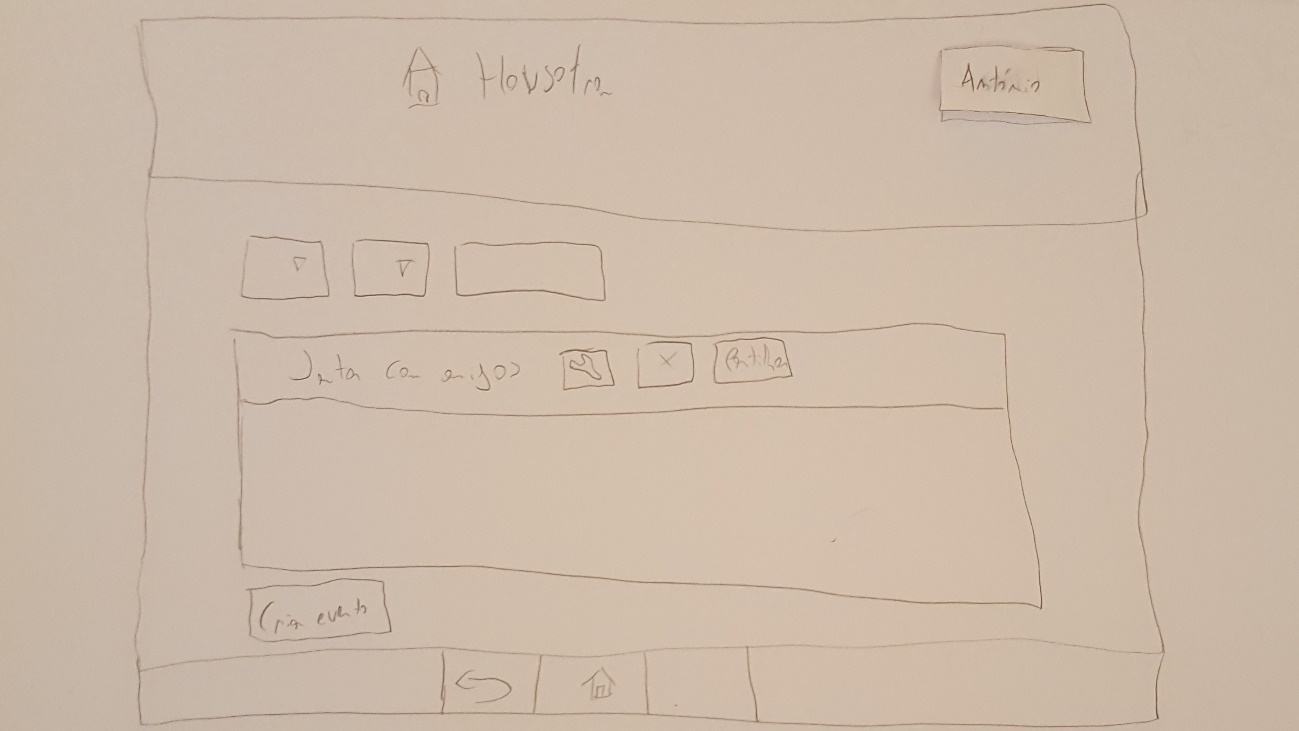 António
Jantar com amigos
Partilhar
Criar evento